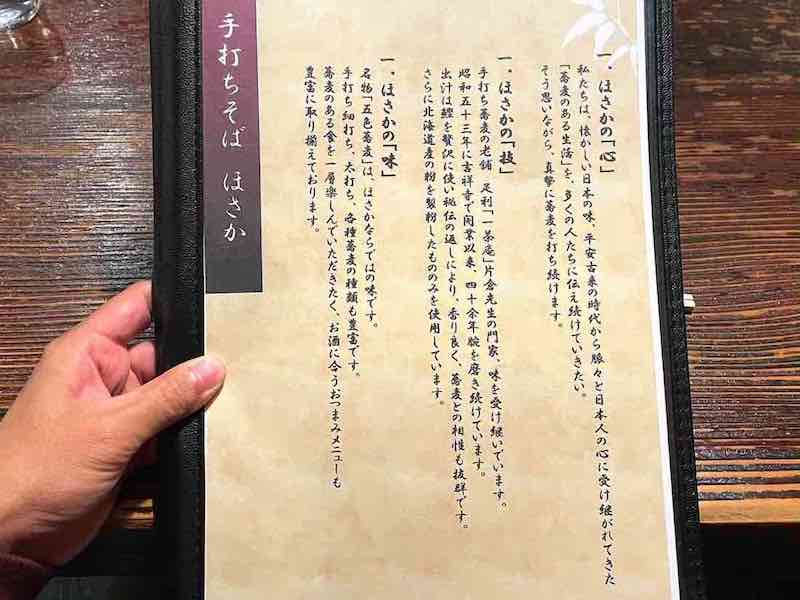 一．ほさかの「心」
私たちは、懐かしい日本の味、平安古来の時代から脈々と日本人の心に受け継がれてきた
「蕎麦のある生活」を、多くの人たちに伝え続けていきたい。
そう思いながら、真摯に蕎麦を打ち続けます。
一．ほさかの「技」
手打ち蕎麦の老舗　足利「一茶庵」片倉先生の門家、味を受け継いでいます。
昭和五十三年に吉祥寺で開業以来、四十余年腕を磨き続けています。
出汁は鰹を贅沢に使い秘伝の返しにより、香り良く、蕎麦との相性も抜群です。
さらに北海道産の粉を製粉したもののみを使用しています。
一．ほさかの「味」
名物「五色蕎麦」は、ほさかならではの味です。
手打ち細打ち、太打ち、各種蕎麦の種類も豊富です。
蕎麦のある食を一層楽しんでいただきたく、お酒に合うおつまみメニューも
豊富に取り揃えております。
手打ちそば ほさか